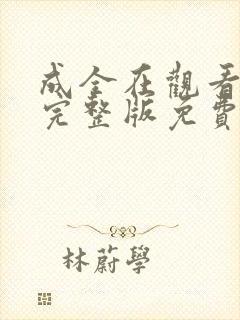 成全在觀看
完整版免費
林蔚學